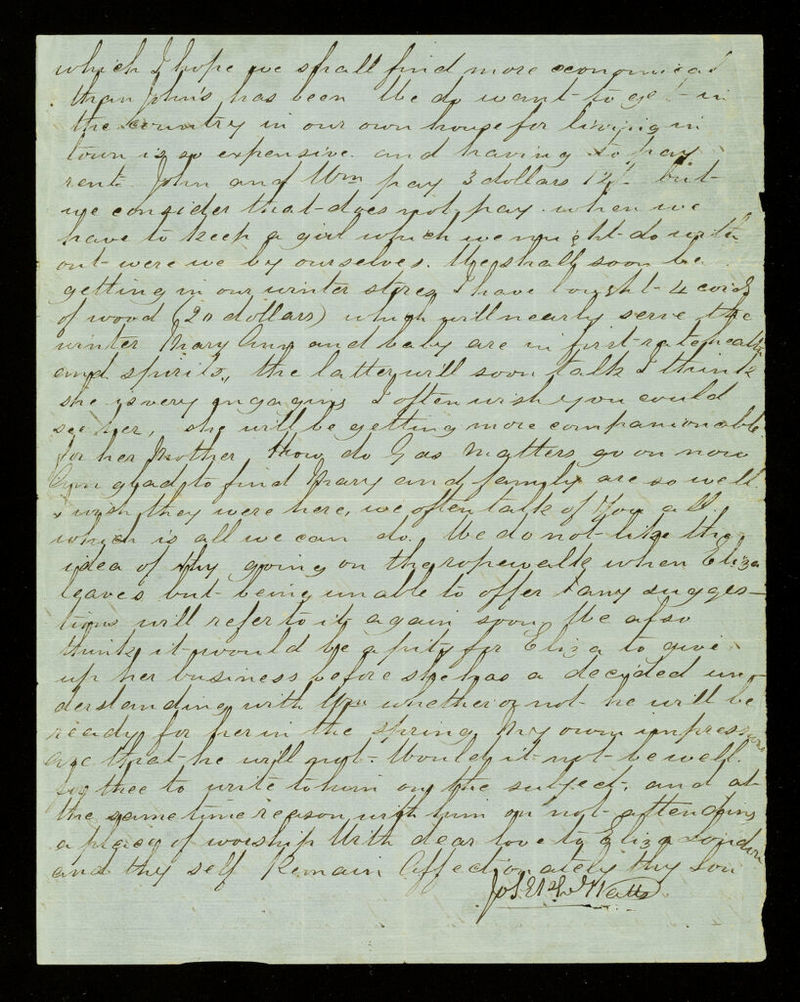 which I hope we shall find more economical
than John's has been We do want to get in
the country in our own house for living in
town is so expensive. and having to pay
rent. John and Wm pay 3 dollars 12½ but
we consider that does not pay. when we
have to keep a girl which we might do with
out were we by ourselves. We shall soon be
getting in our winter stores I have bought 4 cords
of wood (20 dollars) which will nearly serve the
winter Mary Ann and baby are in first rate health
and spirits, the latter will soon talk I think
she is very engaging I often wish you could
see her, she will be getting more companionable
for her Mother How do Gas Matters go on now
Am glad to find Mary and family are so well.
I wish they were here, we often talk of You all.
which is all we can do. We do not like the
idea of thy going on the ropewalk when Eliza
leaves but being unable to offer any sugges-
tions will refer to it again soon We also
think it would be a pity for Eliza to give
up her business before she has a decided un-
derstanding with Wm whether or not he will be
ready for her in the spring My own impressions
are that he will not. Would it not be well
for thee to write to him on the subject, and at
the same time reason with him on not attending
a place of worship With dear love to Eliza
and thy self Remain Affectionately thy Son
Joseph Watts